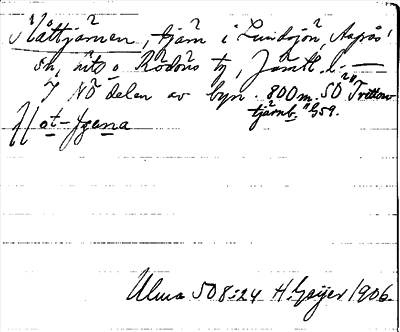 Slåttjärnen, tjärn i Lundsjön, Aspås
sn, utg o Rödöns tg, Jämtl. l. —
I NÖ delen av byn. 800 m. SO "Trillow
tjärnb." bl 59.
Slot-tjena
Ulma 508:24 H. Geijer 1906.